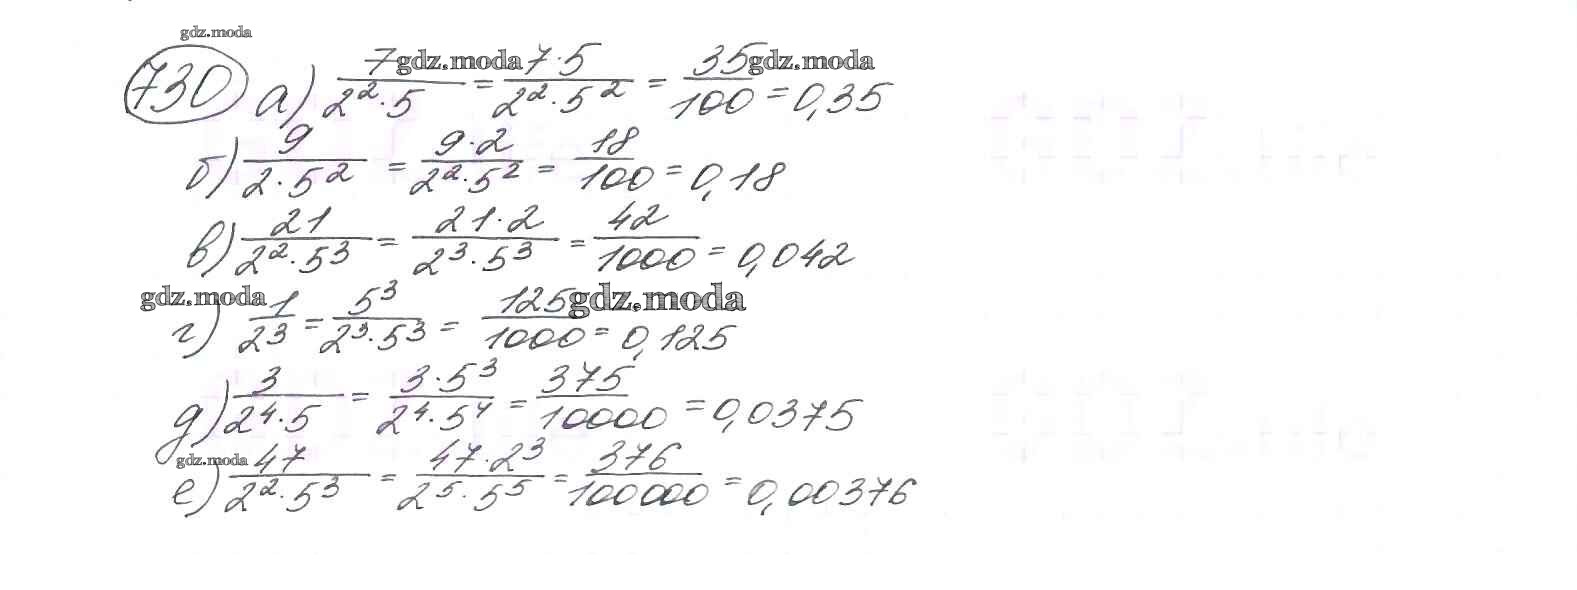 gdz.moda
730 а) 7/(2²·5) = 7·5/(2²·5²) = 35/100 = 0,35
gdz.moda gdz.moda
б) 9/(2·5²) = 9·2/(2²·5²) = 18/100 = 0,18
в) 21/(2²·5³) = 21·2/(2³·5³) = 42/1000 = 0,042
gdz.moda gdz.moda
г) 1/2³ = 5³/(2³·5³) = 125/1000 = 0,125
д) 3/(2⁴·5) = 3·5³/(2⁴·5⁴) = 375/10000 = 0,0375
gdz.moda
е) 47/(2²·5³) = 47·2³/(2⁵·5⁵) = 376/100000 = 0,00376